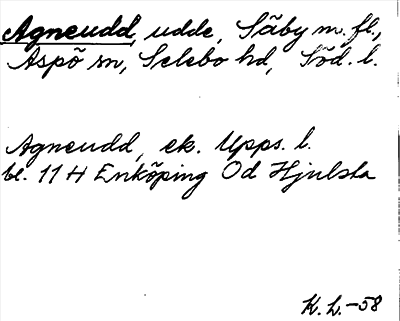 Agneudd, udde, Säby m. fl.,
Aspö sn, Selebo hd, Söd. l.
Agneudd, ek. Upps. l.
bl. 11 H Enköping Od Hjulsta
K. L.-58